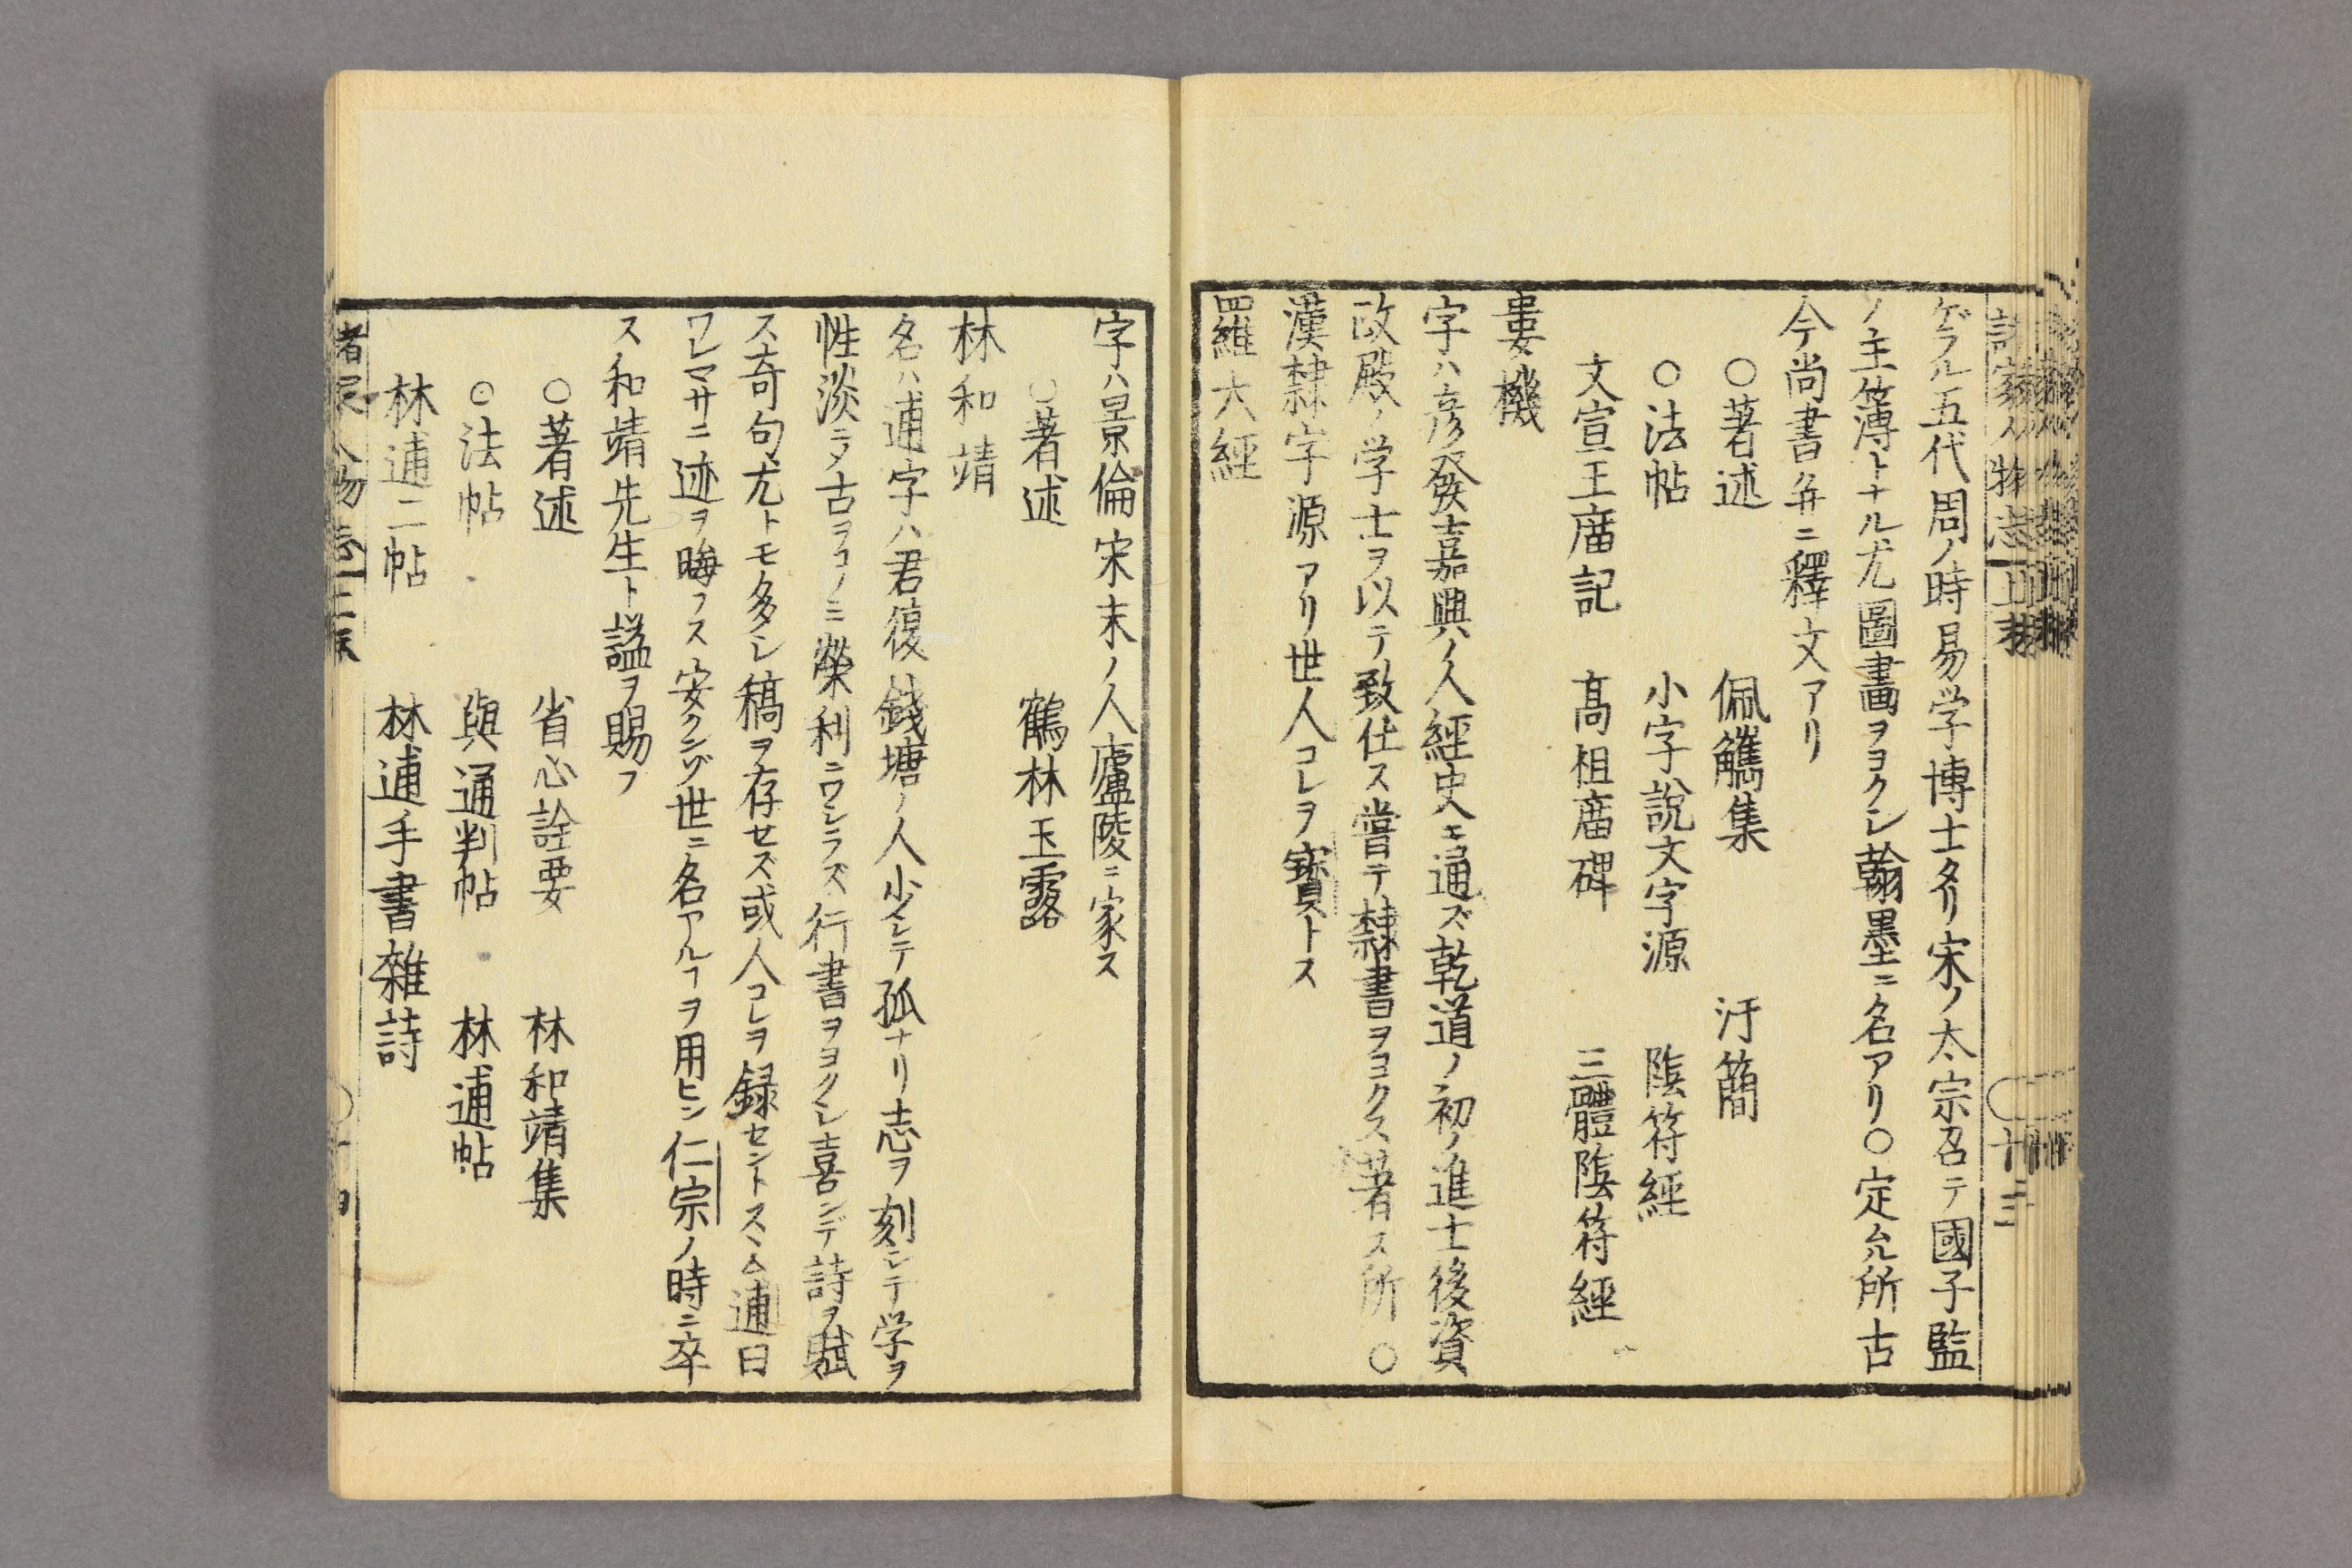 ゲラル五代周ノ時易学博士タリ宋ノ太宗召テ國子監
ノ主簿トナル尤圖畫ヲヨクシ翰墨ニ名アリ○定允所古
今尚書并ニ釋文アリ
○著述 佩觿集 汗簡
○法帖 小字說文字源 陰符經
文宣王廟記 髙祖廟碑 三體陰符經
婁機
字ハ彦發嘉興ノ人經史ニ通ズ乾道ノ初ノ進士後資
政殿ノ学士ヲ以テ致仕ス嘗テ隸書ヲヨクス著ス所○
漢隸字源アリ世人コレヲ寳トス
羅大經
字ハ景倫宋末ノ人廬陵ニ家ス
○著述 鶴林玉露
林和靖
名ハ逋字ハ君復錢塘ノ人少シテ孤ナリ志ヲ刻シテ学ヲ
性淡ニメ古ヲコノミ榮利ニワシラズ行書ヲヨクシ喜ンデ詩ヲ賦
ス奇句尤トモ多シ稿ヲ存セズ或人コレヲ録セントスヽム逋曰
ワレマサニ迹ヲ晦フス安クンゾ世ニ名アルヿヲ用ヒン仁宗ノ時ニ卒
ス和靖先生ト謚ヲ賜フ
○著述 省心詮要 林和靖集
○法帖 與通判帖 林逋帖
林逋二帖 林逋手書雜詩